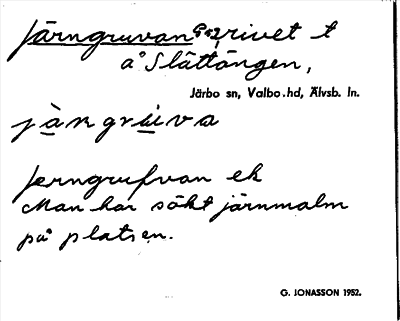 Järngruvan rivet t
å Slättängen,
Järbo sn, Valbo.hd, Älvsb. ln.
jàrngrùva
Jerngrufvan ek
Man har sökt järnmalm
på platsen.
G. JONASSON 1952.